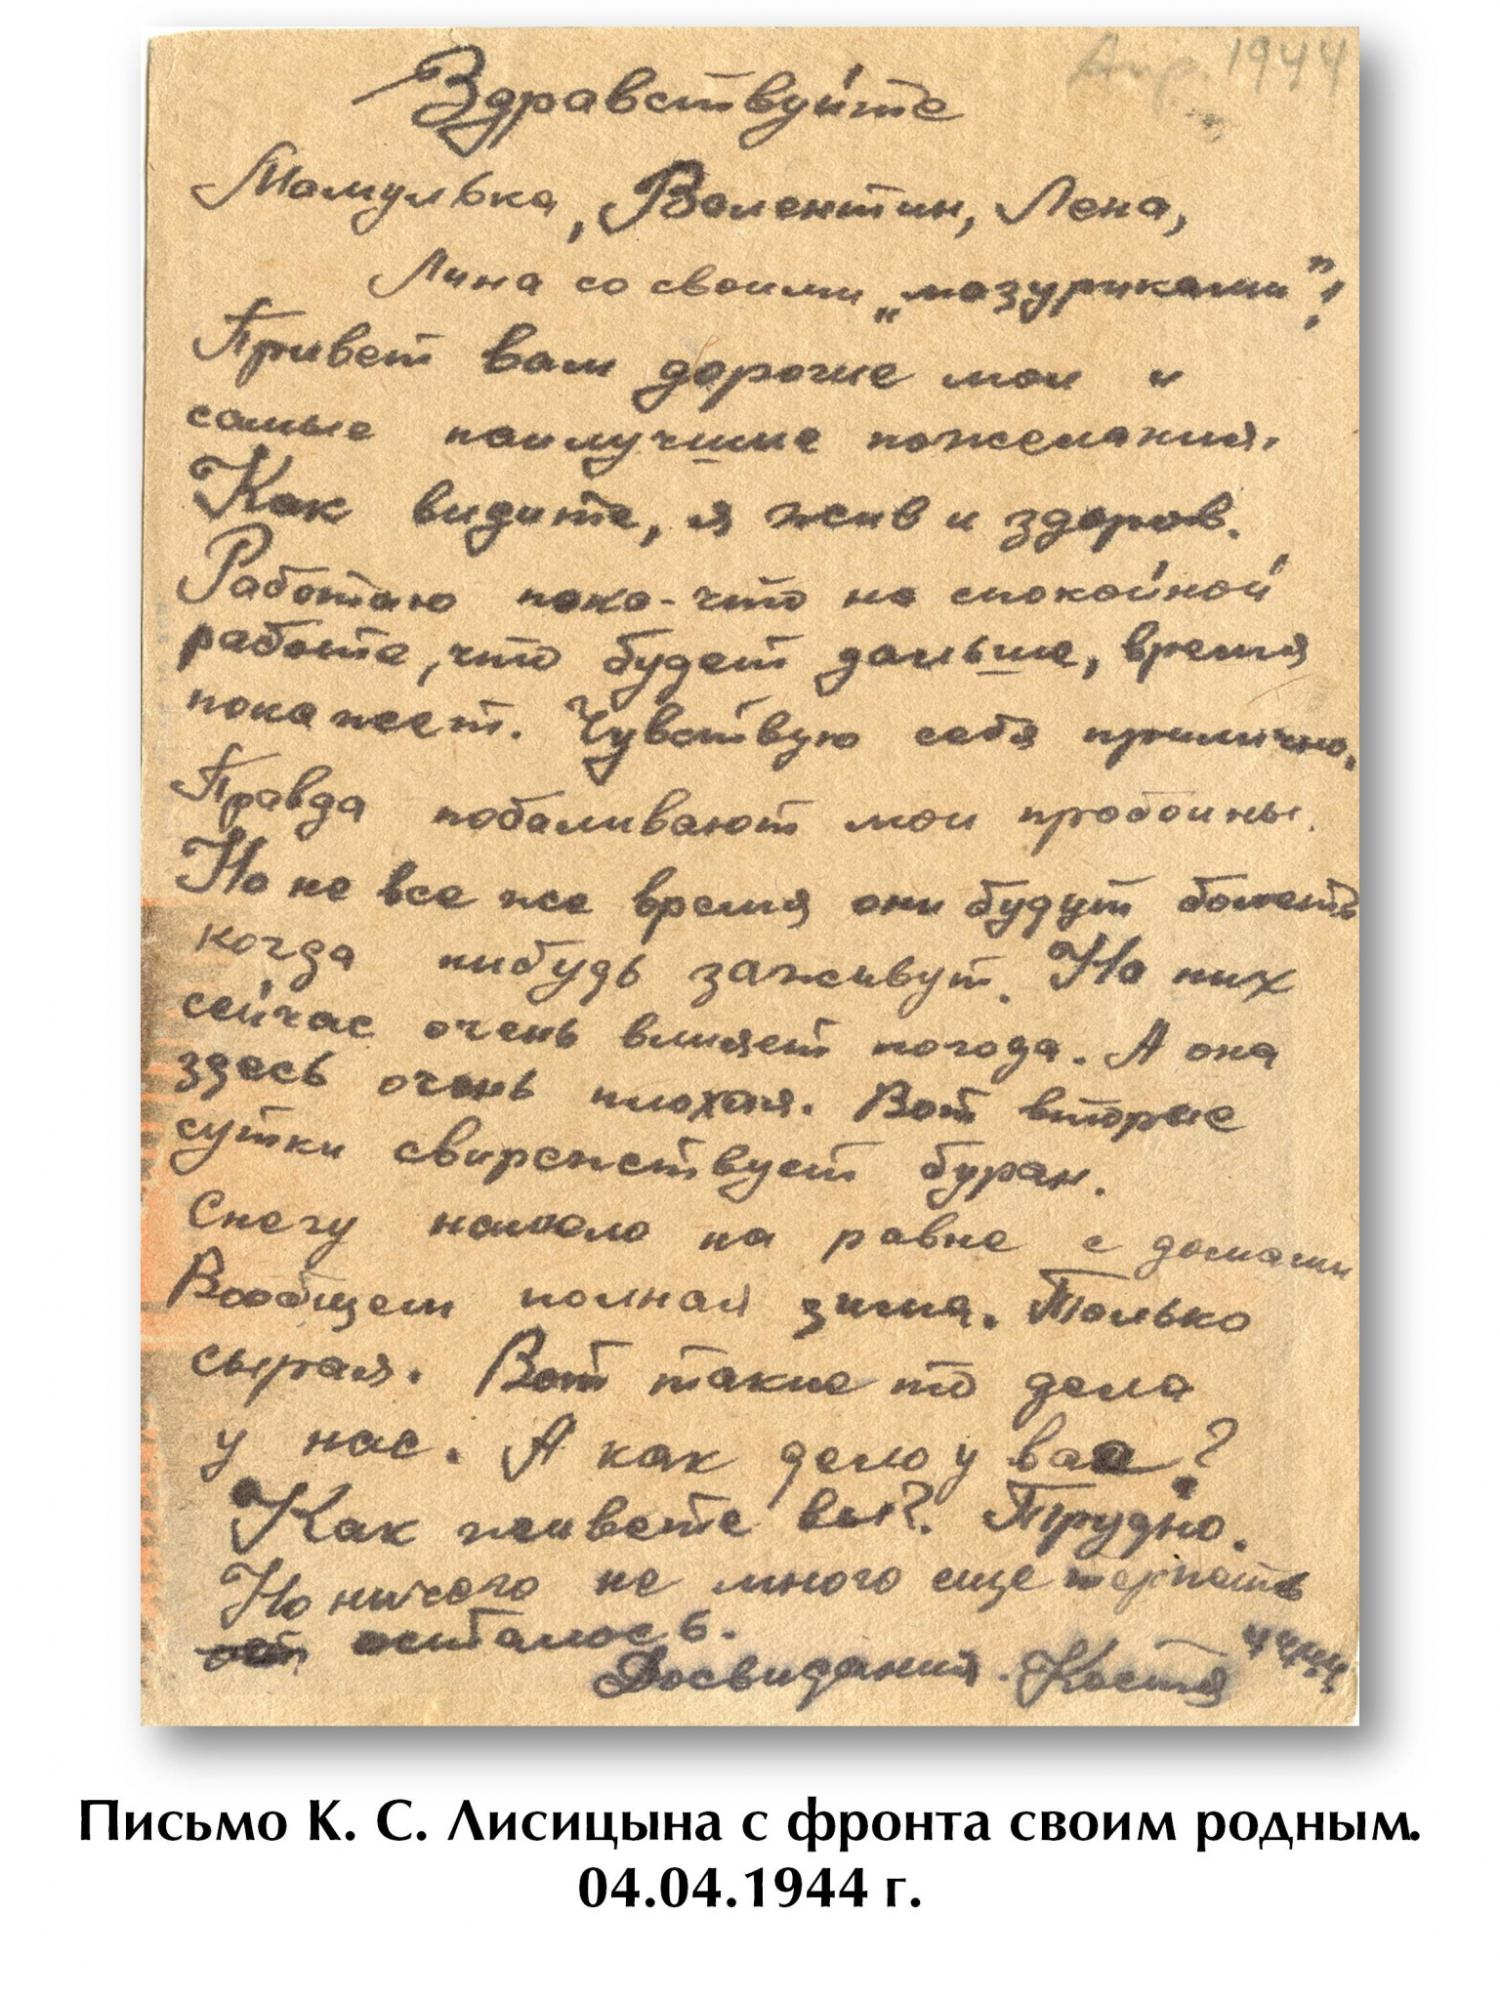 Апр. 1944
Здравствуйте
Мамулька, Валентин, Лена,
Лина со своими „мазуриками"!
Привет вам дорогие мои и
самые наилучшие пожелания.
Как видите, я жив и здоров.
Работаю пока-что на спокойной
работе, что будет дальше, время
покажет. Чувствую себя прилично.
Правда побаливают мои пробоины.
Но не все же время они будут болеть
когда нибудь заживут. На них
сейчас очень влияет погода. А она
здесь очень плохая. Вот вторые
сутки свирепствует буран.
Снегу на равне с домами
Вообщем полная зима. Только
сырая. Вот такие то дела
у нас. А как дело у вас?
Как живете вы?. Трудно.
Но ничего не много еще терпеть
осталось.
Досвидания. Костя 4/4
Письмо К. С. Лисицына с фронта своим родным.
04.04.1944 г.